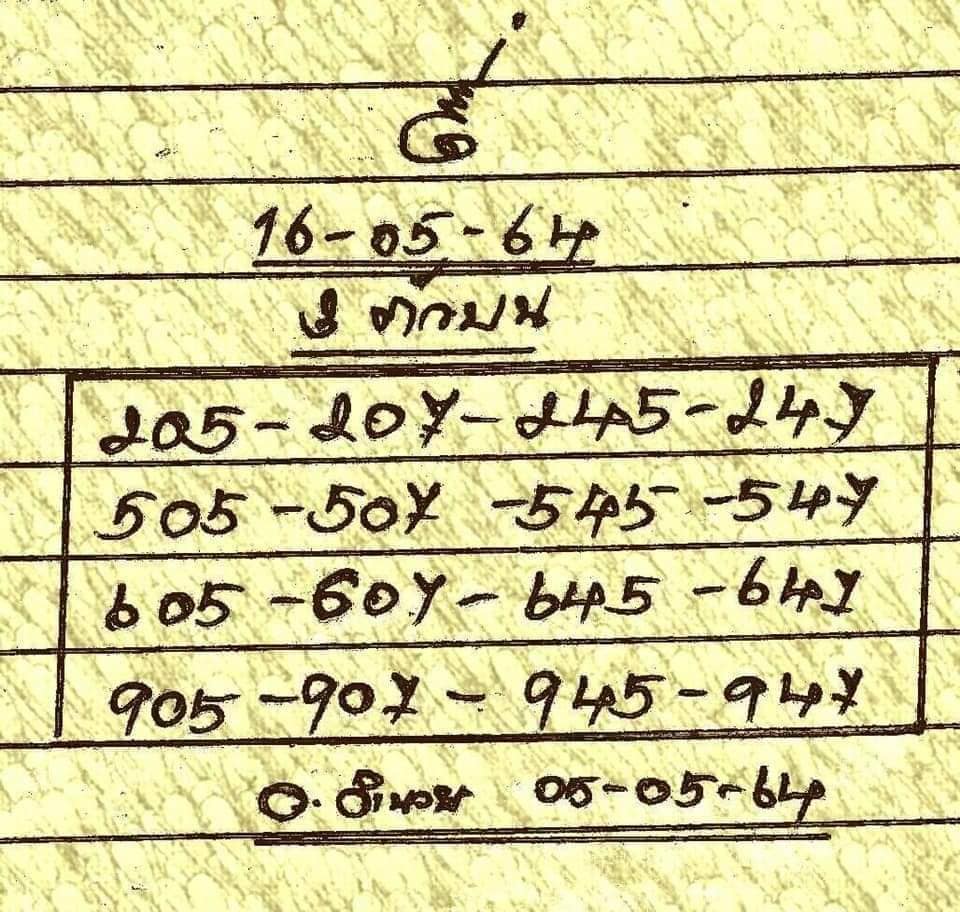 16-05-64
3 ตัวบน
205-207-245-247
505-507-545-547
605-607-645-647
905-907-945-947
อ. 05-05-64